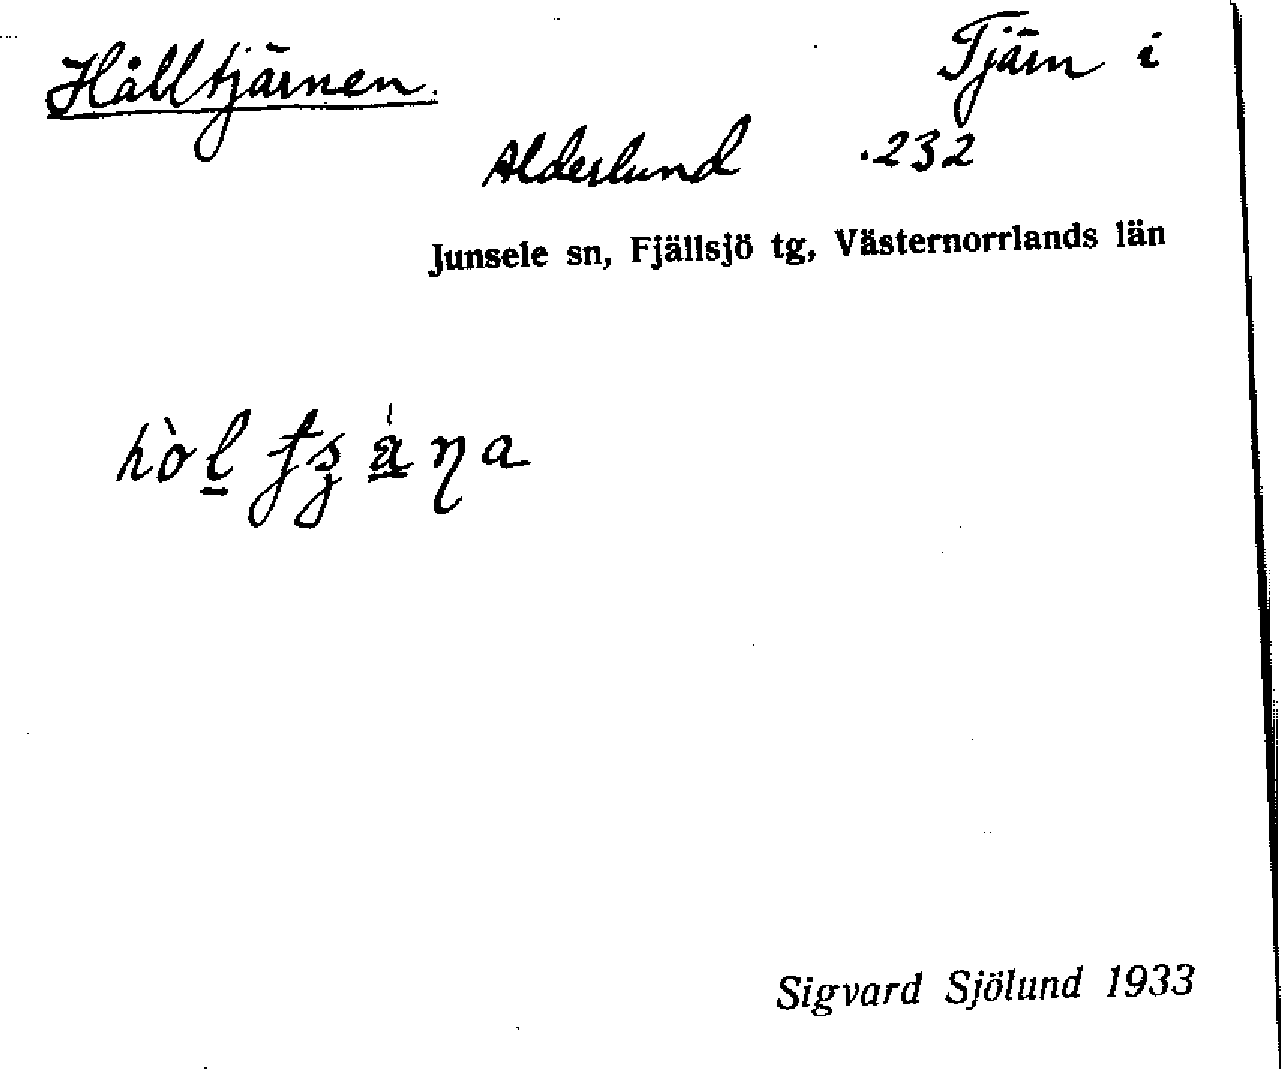 Hålltjärnen. Tjärn i
Alderlund .232
Junsele sn, Fjällsjö tg, Västernorrlands län
Sigvard Sjölund 1933